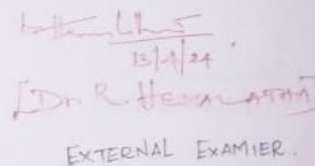 13/4/24.
[Dr. R. HEMALATHA]
EXTERNAL EXAMIER.